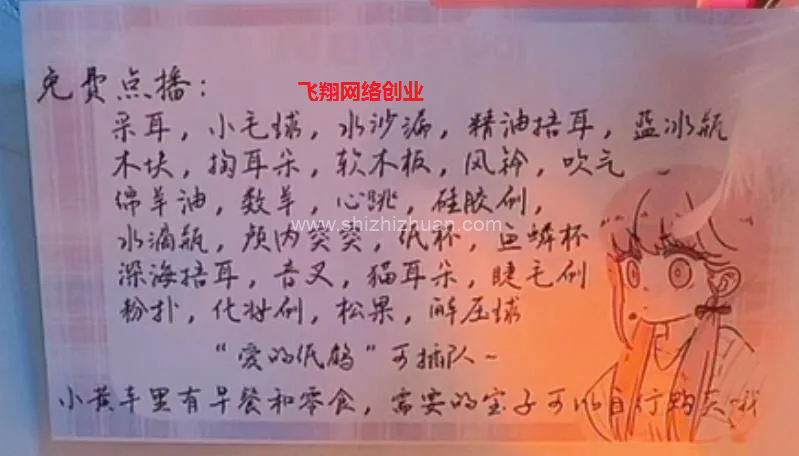 免费点播：
飞翔网络创业
采耳，小毛球，水沙漏，精油捂耳，蓝冰瓶
木块，掏耳朵，软木板，风铃，吹气
绵羊油，数羊，心跳，硅胶刷，
www.shizhizhuan.com
水滴瓶，颅内突突，纸杯，鱼鳞杯
深海捂耳，音叉，猫耳朵，睫毛刷
粉扑，化妆刷，松果，解压球
“爱的纸鹤”可插队～
小黄车里有早餐和零食，需要的宝子可以自行购买